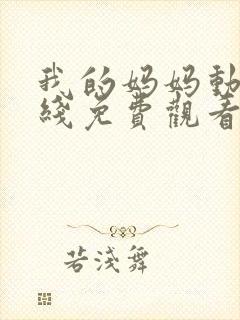 我的妈妈動
綫免費觀看
若淺舞